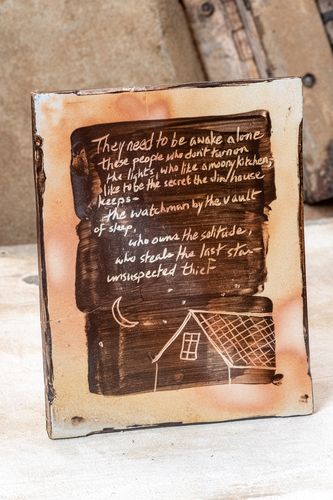 They need to be awake alone
these people who don't turn on
the lights, who like a moony kitchen,
like to be the secret the dim house
keeps –
the watchman by the vault
of sleep,
who owns the solitude,
who steals the last star –
unsuspected thief